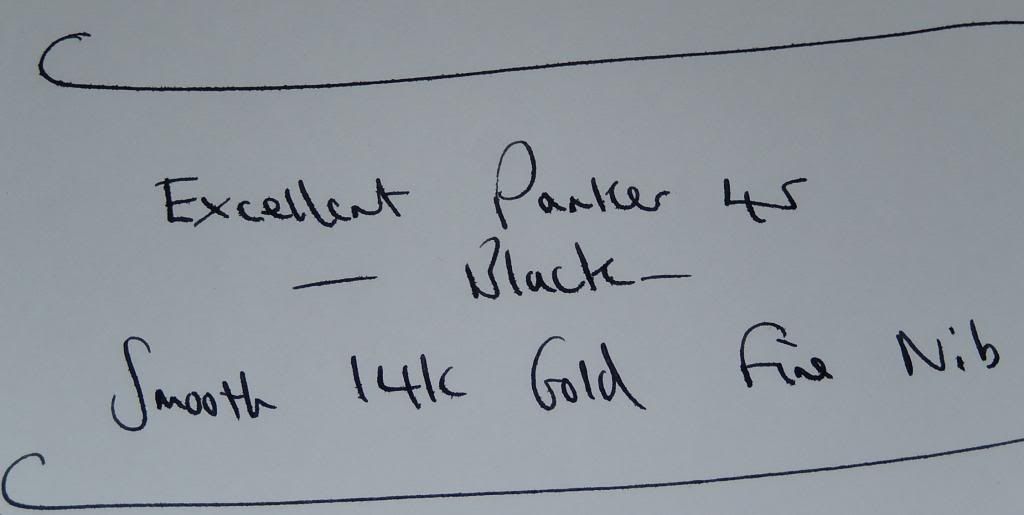 Excellent Parker 45
— Black —
Smooth 14k Gold Fine Nib